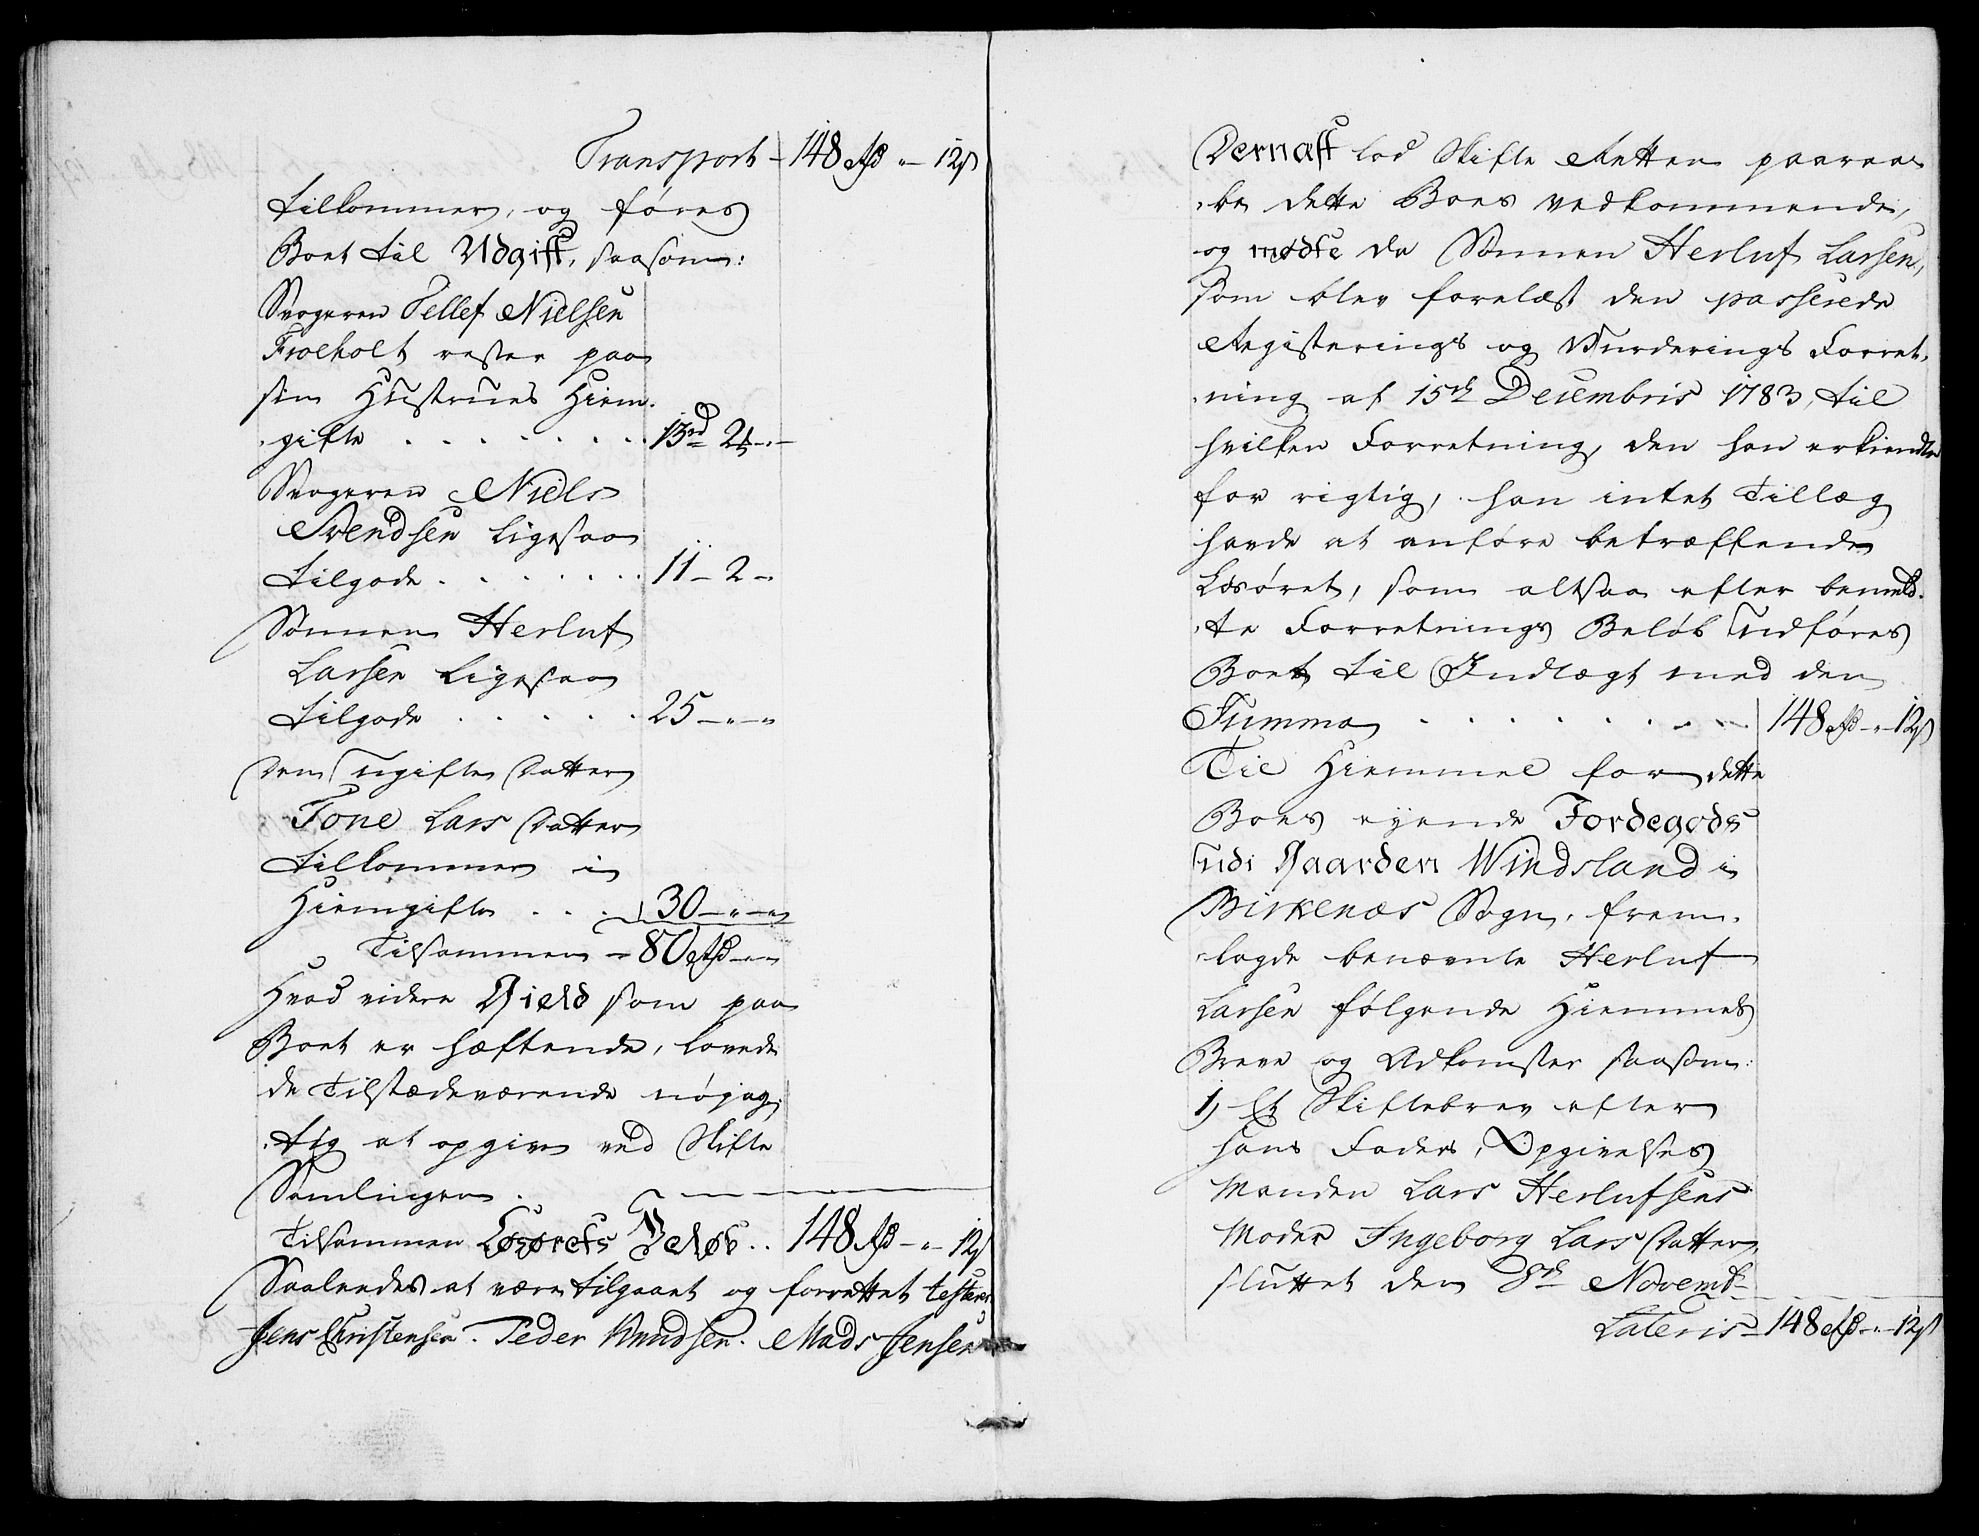 Transport - 148 Rd " - 12 s
tilkommer, og føres
Boet til Udgift, saasom:
Svogeren Tellef Nielsen
Froeholt rester paa
sin Hustrues Hiem-
-gifte . . . . . . . . . 13rd 2 -
Svogeren Niels
Svendsen ligesaa
tilgode . . . . . . . 11 - 2 -
Sønnen Herluf
Larsen ligesaa
tilgode . . . . . . 25 - " - "
Den ugifte Datter
Tone Lars Datter
tilkommer i
Hiemgifte . . . 30 - " - "
Tilsammen - 80 Rd - " -
Hvad videre Gield som paa
Boet er hæftende, lovede
de Tilstædeværende nøyag-
-tig at opgive ved Skifte
Samlingen.
Tilsammen Løsørets Beløb . . 148 Rd - " - 12 s
Saaledes at være tilgaaet og forrettet testerer
Jens Christensen. Peder Knudsen. Mads Jensen
Dernæst lod Skifte Retten paaraa-
-be dette Boes vedkommende,
og mødte da Sønnen Herluf Larsen,
som blev forelæst den passerede
Registerings og Vurderings Forret-
-ning af 15de Decembris 1783, til
hvilken Forretning, den han erkiendte
for rigtig, han intet Tillæg
havde at anføre betræffende
Løsøret, som altsaa efter bemeld-
-te Forretnings Beløb udføres
Boet til Indtægt med den
Summa . . . . . . . . 148 Rd - " - 12 s
Til Hiemmel for dette
Boes eyende Jordegods
udi Gaarden Windsland i
Birkenæs Sogn, frem-
-lagde benævnte Herluf
Larsen følgende Hiemmels
Breve og Adkomster saasom:
1) Et Skiftebrev efter
hans Faders, Opgivelses
Manden Lars Herlufsens
Moder Ingeborg Lars Datter,
sluttet den 8de Novembr
Lateris - 148 Rd - " - 12 s